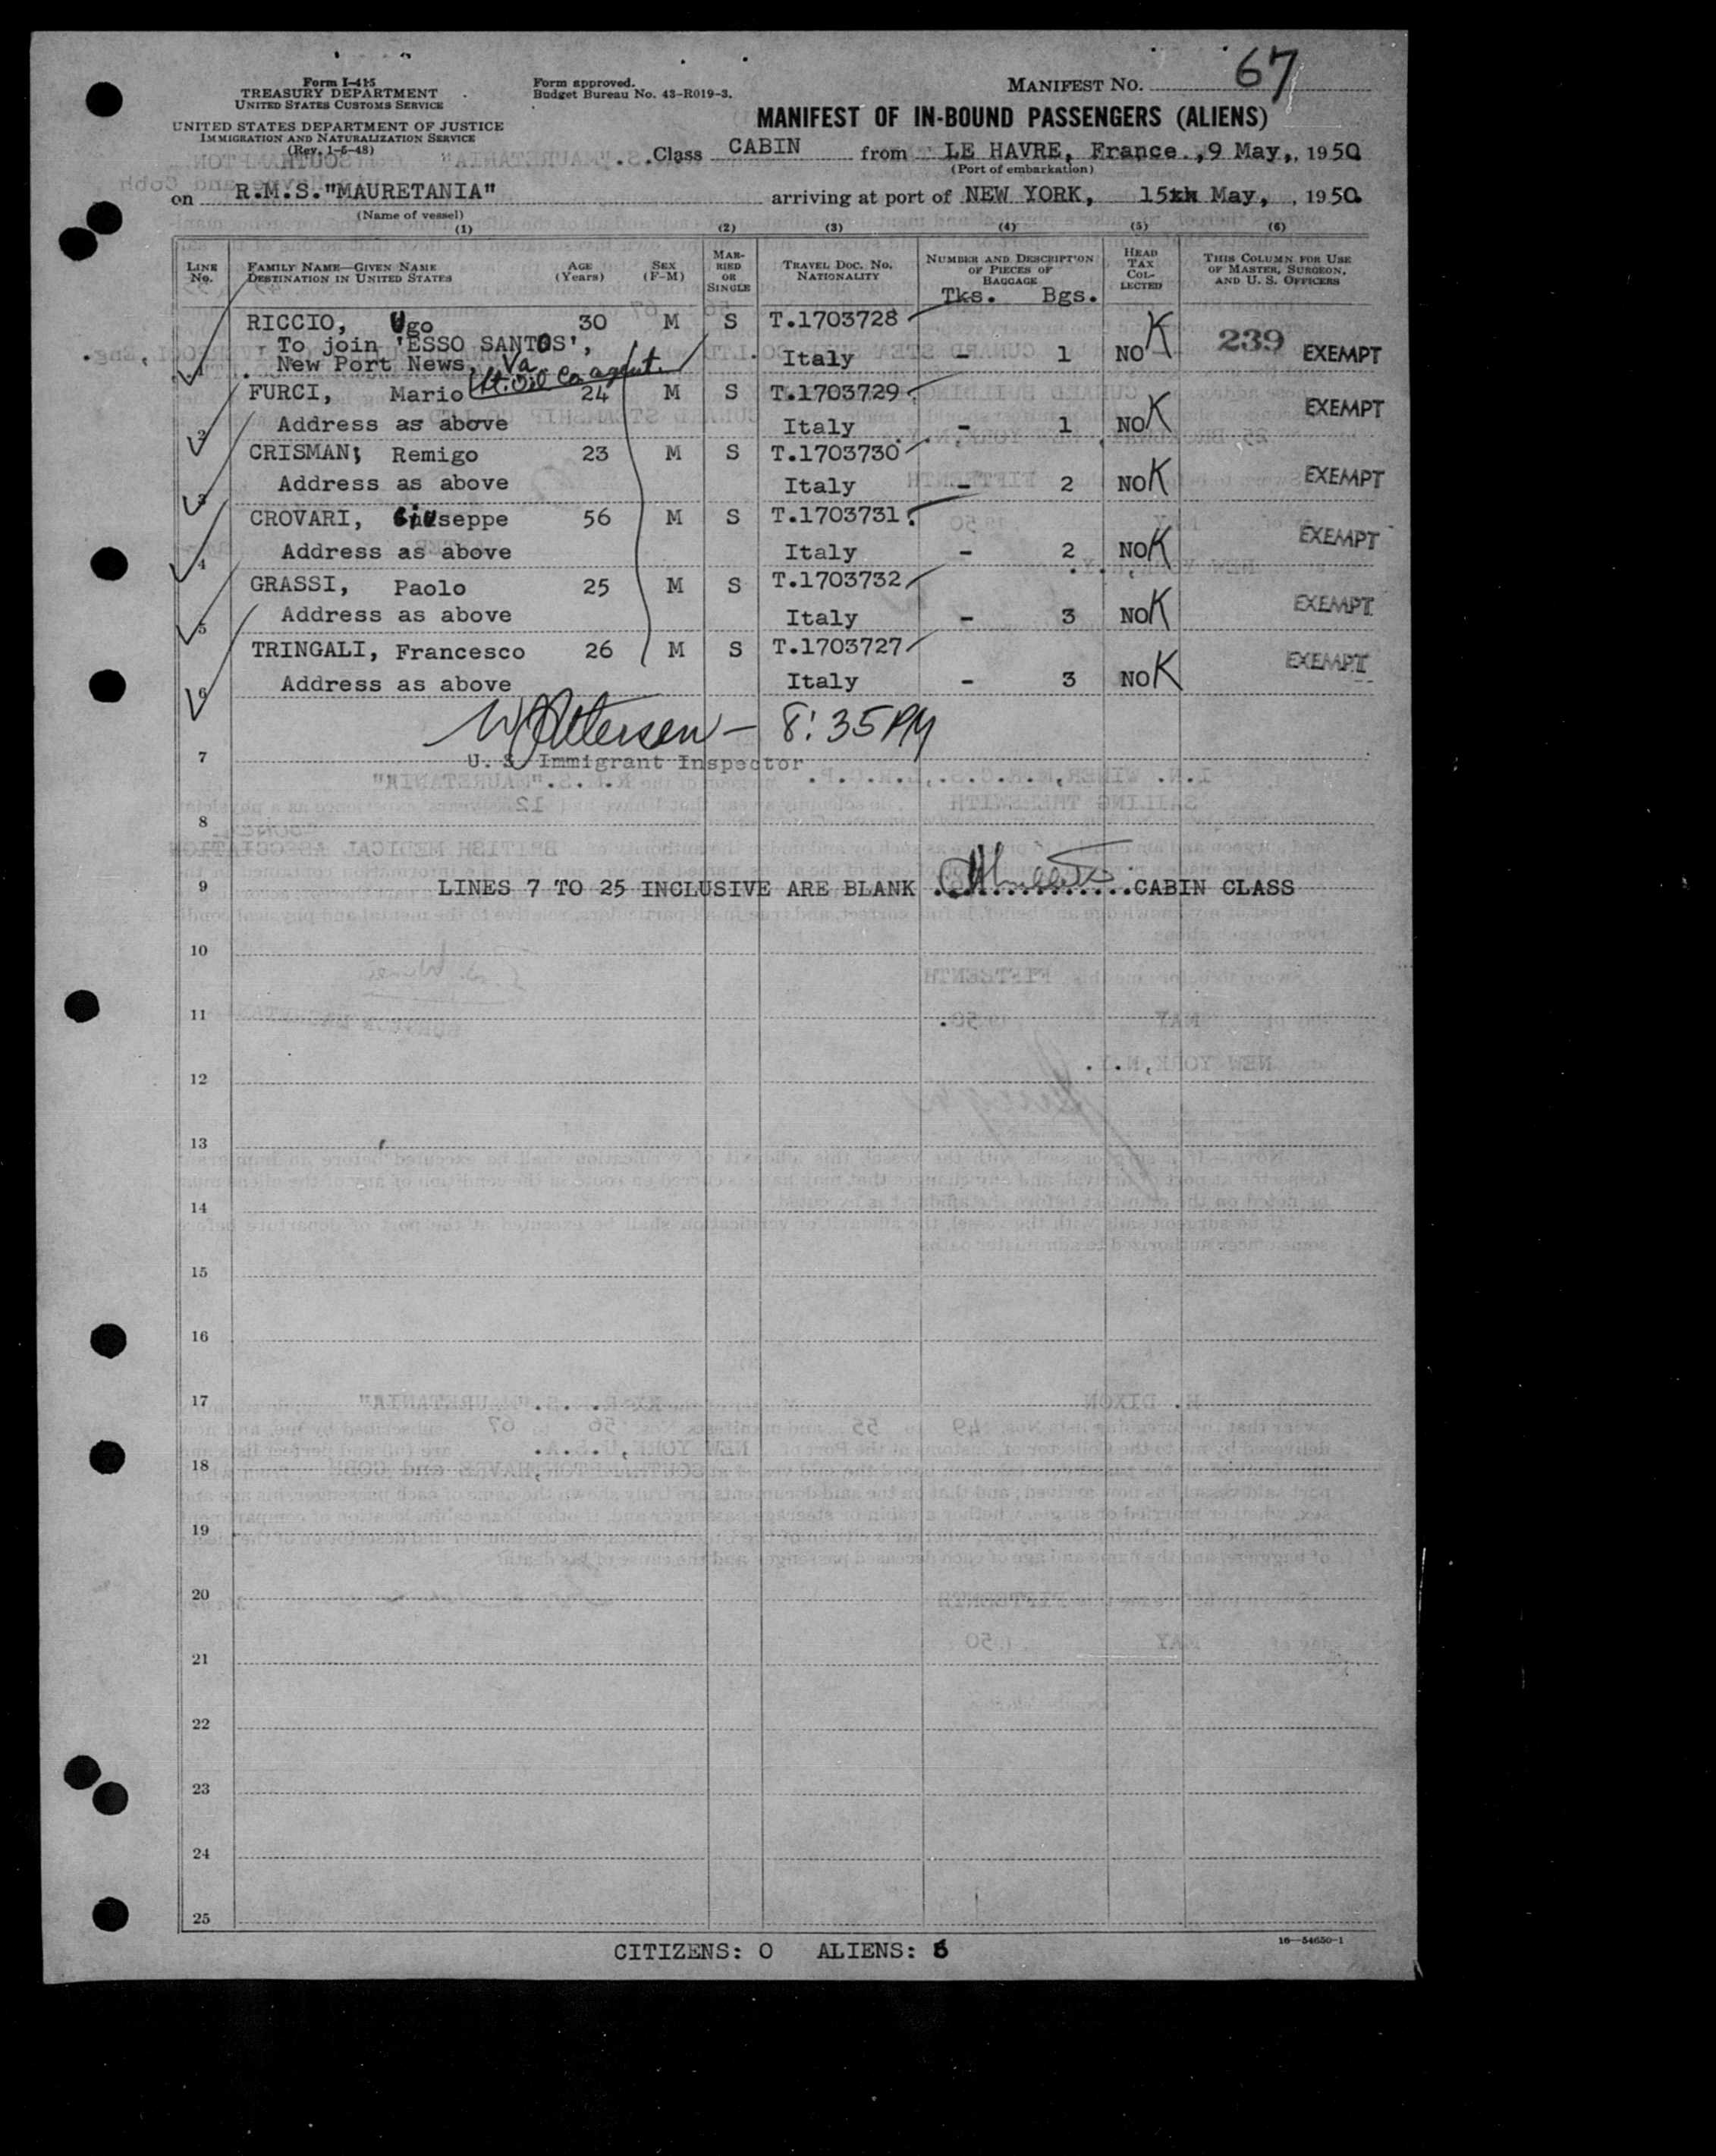 Form I-415
TREASURY DEPARTMENT
UNITED STATES CUSTOMS SERVICE
UNITED STATES DEPARTMENT OF JUSTICE
IMMIGRATION AND NATURALIZATION SERVICE
(Rev. 1-6-48)
Form approved.
Budget Bureau No. 43-R019-3.
MANIFEST NO. 67
MANIFEST OF IN-BOUND PASSENGERS (ALIENS)
Class CABIN from LE HAVRE, France., 9 May,, 1950
(Port of embarkation)
on R.M.S."MAURETANIA" arriving at port of NEW YORK, 15th May, , 1950
(Name of vessel)
(1) (2) (3) (4) (5) (6)
LINE No. FAMILY NAME—GIVEN NAME DESTINATION IN UNITED STATES AGE (Years) SEX (F-M) MARRIED OR SINGLE TRAVEL DOC. NO. NATIONALITY NUMBER AND DESCRIPTION OF PIECES OF BAGGAGE HEAD TAX COLLECTED THIS COLUMN FOR USE OF MASTER, SURGEON, AND U. S. OFFICERS
Tks. Bgs.
RICCIO, Ugo 30 M S T.1703728
To join 'ESSO SANTOS',
New Port News, Va. Italy - 1 NO K 239 EXEMPT
St. Oil Co agent
FURCI, Mario 24 M S T.1703729
2 Address as above Italy - 1 NO K EXEMPT
CRISMAN; Remigo 23 M S T.1703730
3 Address as above Italy - 2 NO K EXEMPT
CROVARI, Giuseppe 56 M S T.1703731
4 Address as above Italy - 2 NO K EXEMPT
GRASSI, Paolo 25 M S T.1703732
5 Address as above Italy - 3 NO K EXEMPT
TRINGALI, Francesco 26 M S T.1703727
6 Address as above Italy - 3 NO K EXEMPT
8:35 PM
7 U. S. Immigrant Inspector
8
9 LINES 7 TO 25 INCLUSIVE ARE BLANK CABIN CLASS
10
11
12
13
14
15
16
17
18
19
20
21
22
23
24
25
CITIZENS: 0 ALIENS: 6
16—54650-1